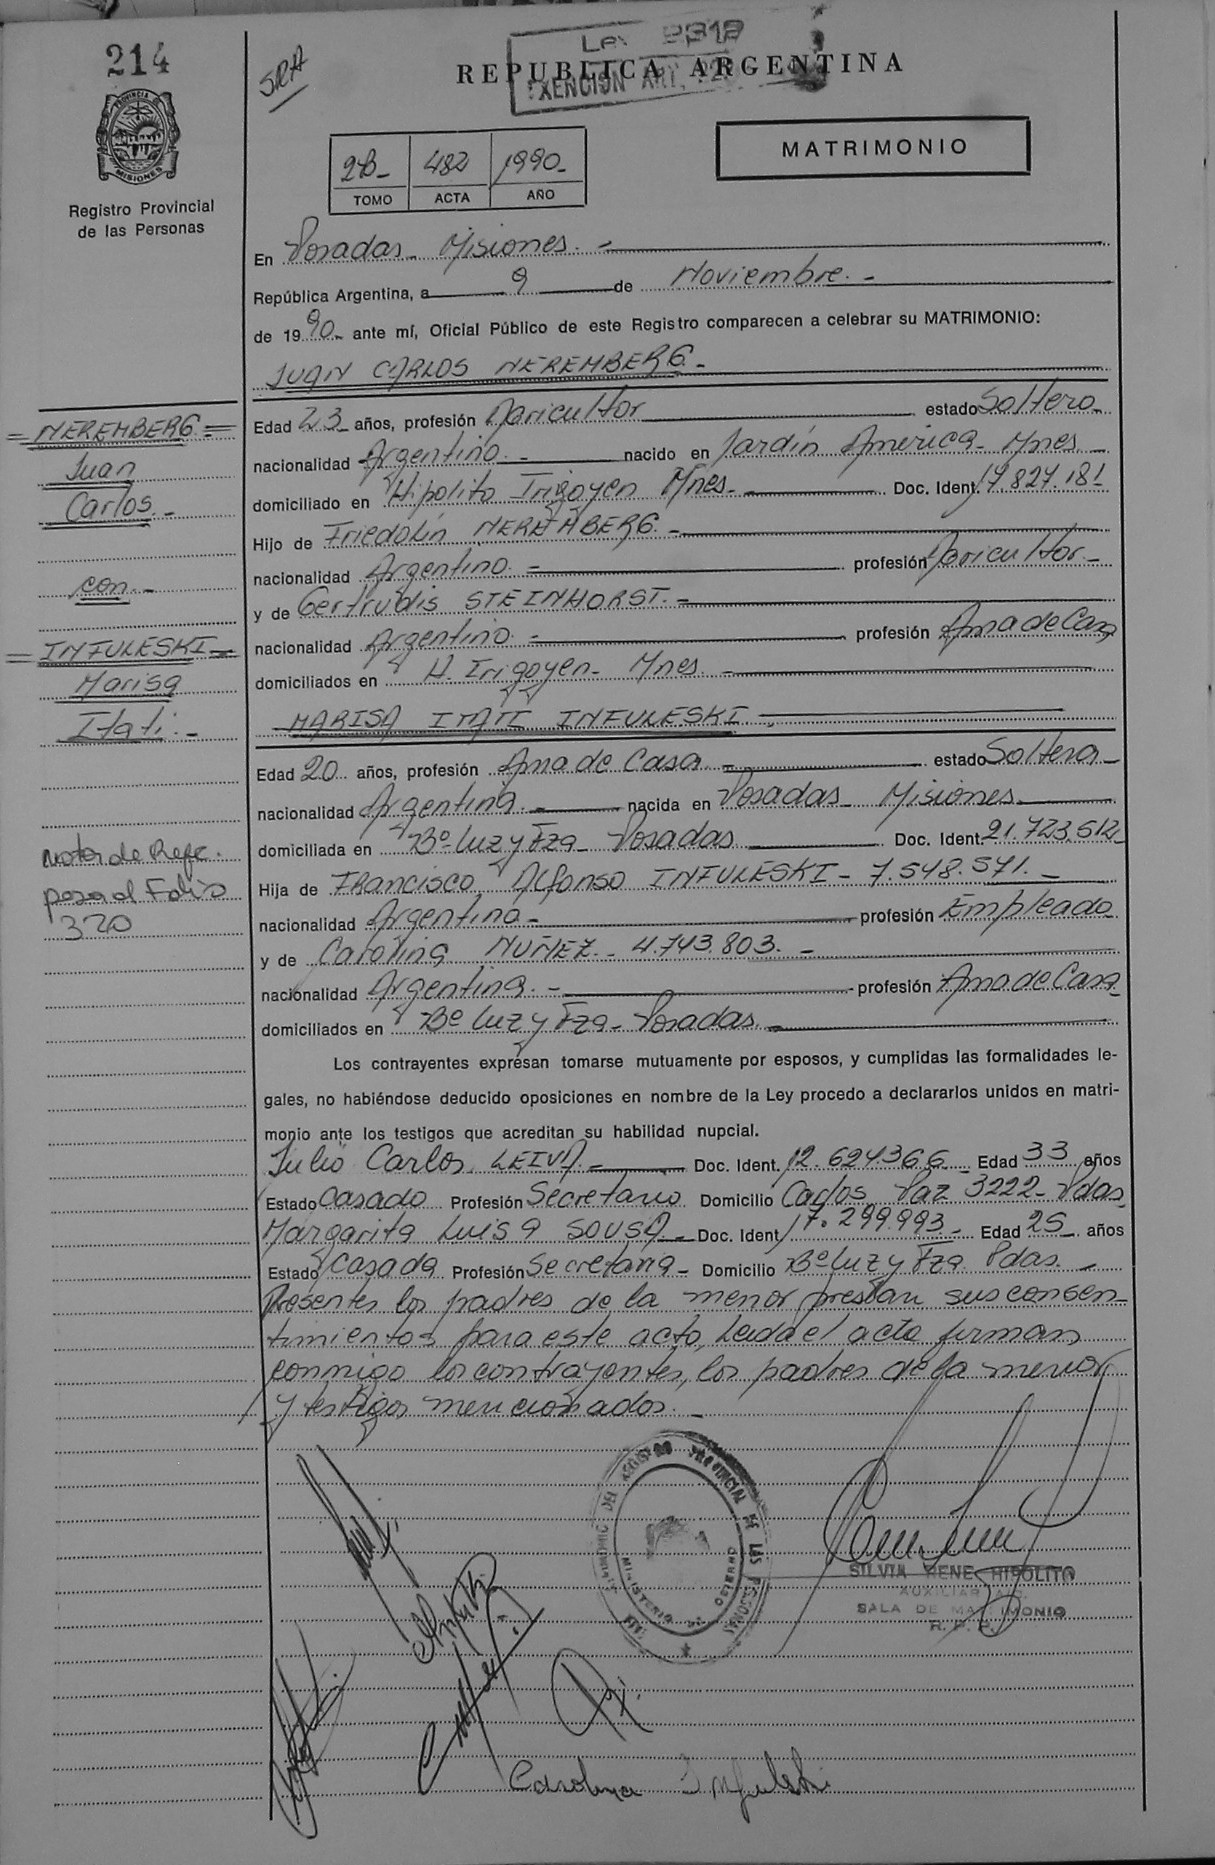 214
LEY
EXENCION ART.
SRA
REPUBLICA ARGENTINA
PROVINCIA DE
MISIONES
Registro Provincial
de las Personas
2B- 482 1990-
TOMO ACTA AÑO
MATRIMONIO
En Posadas - Misiones. -
República Argentina, a 9 de Noviembre. -
de 1990- ante mí, Oficial Público de este Registro comparecen a celebrar su MATRIMONIO:
JUAN CARLOS NEREMBERG. -
= NEREMBERG =
Juan
Carlos. -
con. -
= INFULESKI =
Marisa
Itati. -
Nota de Refe.
pasa al Folio
320
Edad 23 - años, profesión Agricultor estado Soltero -
nacionalidad Argentino. - nacido en Jardín América - Mnes
domiciliado en Hipolito Irigoyen Mnes - Doc. Ident. 17.827.181
Hijo de Friedolin NEREMBERG. -
nacionalidad Argentino. - profesión Agricultor. -
y de Gertrudis STEINHORST. -
nacionalidad Argentino. - profesión Ama de Casa
domiciliados en H. Irigoyen - Mnes -
MARISA ITATI INFULESKI -
Edad 20 años, profesión Ama de Casa - estado Soltera -
nacionalidad Argentina. - nacida en Posadas - Misiones
domiciliada en Bº Luz y Fza - Posadas Doc. Ident. 21.723.612
Hija de Francisco Alfonso INFULESKI - 7.548.571. -
nacionalidad Argentino - profesión Empleado
y de Carolina NUÑEZ - 4.743.803. -
nacionalidad Argentina. - profesión Ama de Casa
domiciliados en Bº Luz y Fza - Posadas. -
Los contrayentes expresan tomarse mutuamente por esposos, y cumplidas las formalidades le-
gales, no habiéndose deducido oposiciones en nombre de la Ley procedo a declararlos unidos en matri-
monio ante los testigos que acreditan su habilidad nupcial.
Julio Carlos LEIVA. - Doc. Ident. 12.624.366 - Edad 33 años
Estado Casado Profesión Secretario Domicilio Carlos Paz 3222 - Pdas
Margarita Luisa SOUSA - Doc. Ident. 17.299.993 - Edad 25 años
Estado Casada Profesión Secretaria - Domicilio Bº Luz y Fza Pdas. -
Presentes los padres de la menor prestan sus consen-
timientos para este acto, Leida el acta firman
conmigo los contrayentes, los padres de la menor
y testigos mencionados. -
REGISTRO PROVINCIAL DE LAS PERSONAS
MINISTERIO DE GOBIERNO
SILVIA RENE HIPOLITO
AUXILIAR
SALA DE MATRIMONIO
R. P. P.
Carolina Infuleski